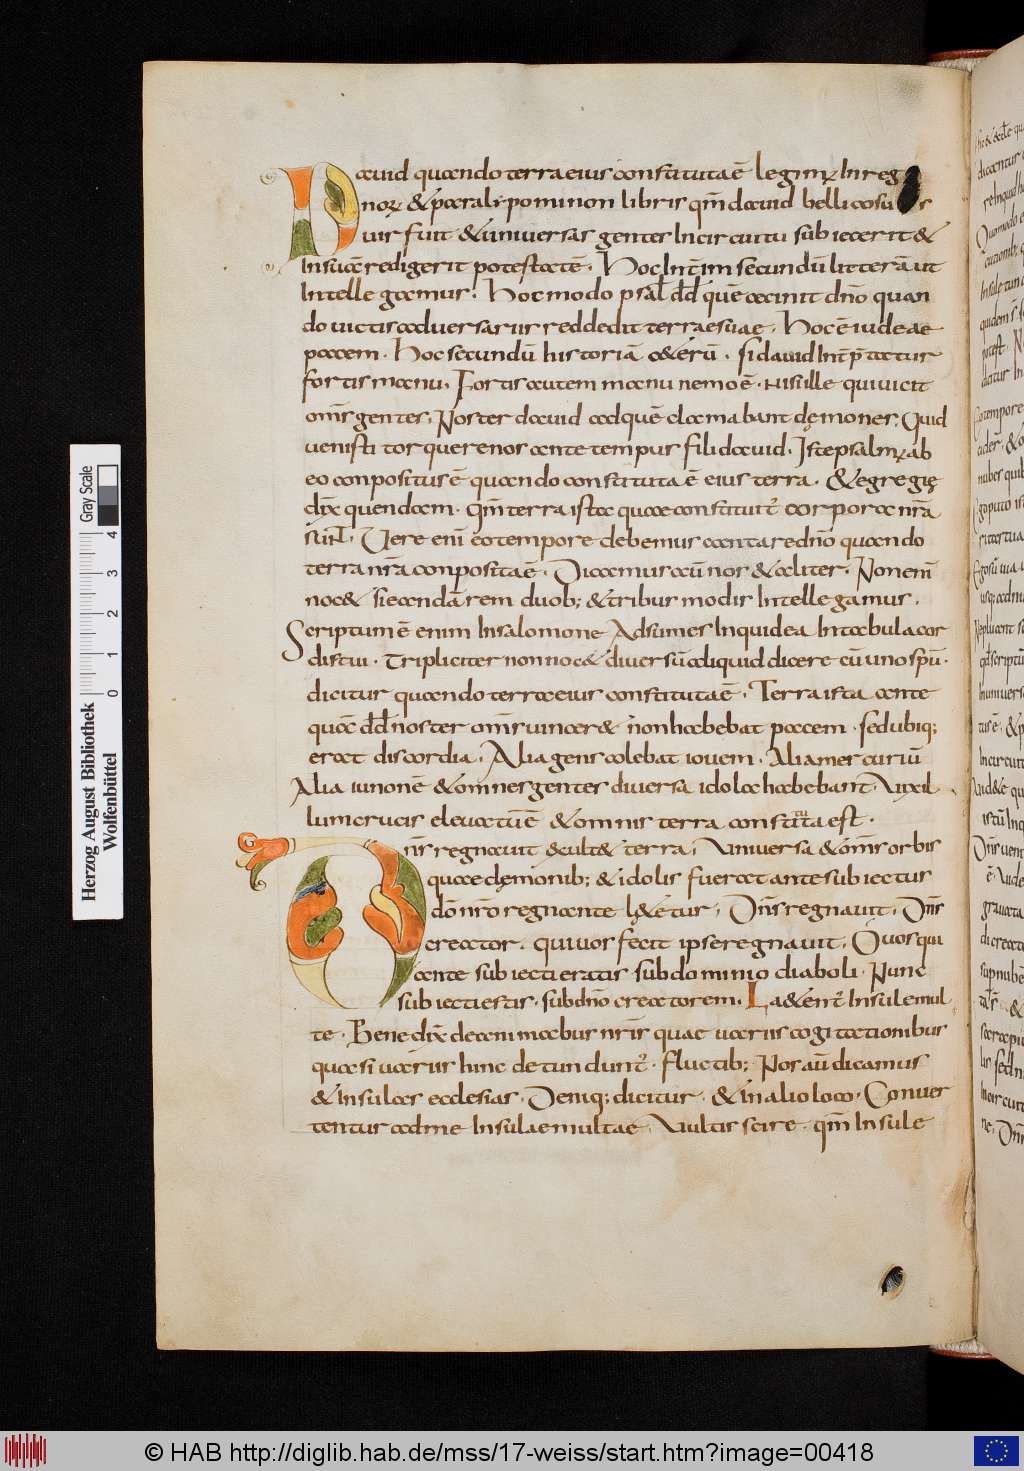 Dauid quando terra eius constituta ē legimꝰ In reg
noꝝ & paralypominon libris qm̄ dauid bellicosu s
uir fuit & uniuersas gentes In circuitu subiecerit &
In suā redigerit potestatē. Hoc Int̄im secundū litterā ut
Intellegamus. Hoc modo psal d̄d quē cecinit dn̄o quan
do uictis aduersariis reddedit terrae suae. Hoc ē iudeae
pacem. Hoc secundū historiā ceterū. si dauid Int̄p̄tatur
fortis manu. Fortis autem manu nemo ē. nisi ille qui uicit
om̄s gentes. Noster dauid ad quē clamabant dęmones. Quid
uenisti torquere nos ante tempus fili dauid. Iste psalmꝰ ab
eo conpositus ē quando constituta ē eius terra. & egregię
dix̄ quendam. Qm̄ terra ista quae constituit̄ corpora nr̄a
sunt. Uere eni ēo tempore debemus cantare dn̄o quando
terra nr̄a conposita ē. Dicamus acū nos & aliter. Non eni
noc& si ecendā rem duob; & tribus modis Intellegamus.
Scriptum ē enim In salomone Adsumes Inquid ea In tabula cor
dis tui. Tripliciter non noc& diuersū aliquid dicere cū uno spū.
dicitur quando terra eius constituta ē. Terra ista ante
quā d̄d noster om̄s uincer& non habebat pacem. sed ubiq;
erat discordia. Alia gens colebat iouem. Alia mercuriū
Alia iunonē & omnes gentes diuersa idola habebant. Uixil
lum crucis eleuatū ē & omnis terra constituta est.
Dn̄s regnauit exult& terra. Uniuersa & om̄s orbis
quae dęmonib; & idolis fuerat ante subiectus
dō nr̄o regnante lęt&ur. Dn̄s regnauit. Dn̄s
creator. qui uos fecit ipse regnauit. Quos qui
ante subiecti eratis sub dominio diaboli. Nunc
subiecti estis. sub dn̄o creatorem. Laetent̄ Insule mul
te. Bene dix̄ decem mabus nr̄is quae uariis cogitationibus
quasi uariis hinc de tundunt̄. fluctib; Nos aū dicamus
& insulas ecclesias. Deniq; dicitur. & in alio loco. Conuer
tentur ad me Insulae multae. Uultis scire. qm̄ Insule
Herzog August Bibliothek
Wolfenbüttel
Gray Scale
0 1 2 3 4
© HAB http://diglib.hab.de/mss/17-weiss/start.htm?image=00418